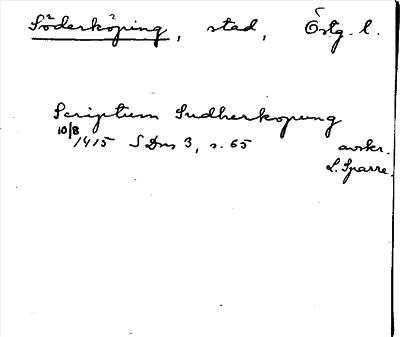 Söderköping, stad, Östg. l.
Scriptum Sudherkopung
10/8 1415 SDns 3, s. 65 avskr.
L. Sparre.